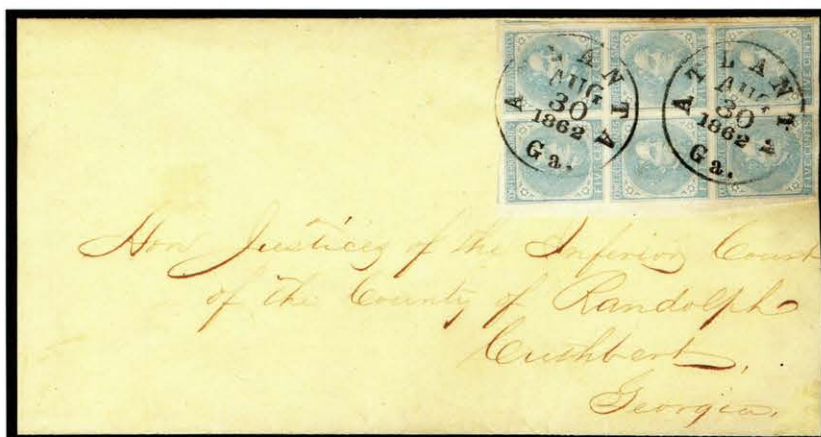 ATLANTA
AUG
30
1862
Ga.
ATLANTA
AUG
30
1862
Ga.
FIVE CENTS
Hon Justices of the Inferior Court
of the County of Randolph
Cuthbert,
Georgia.